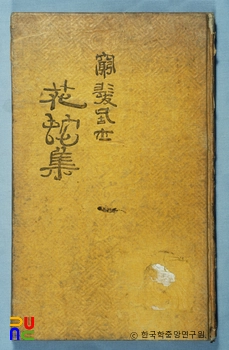 窮髮居士
花蛇集
© 한국학중앙연구원